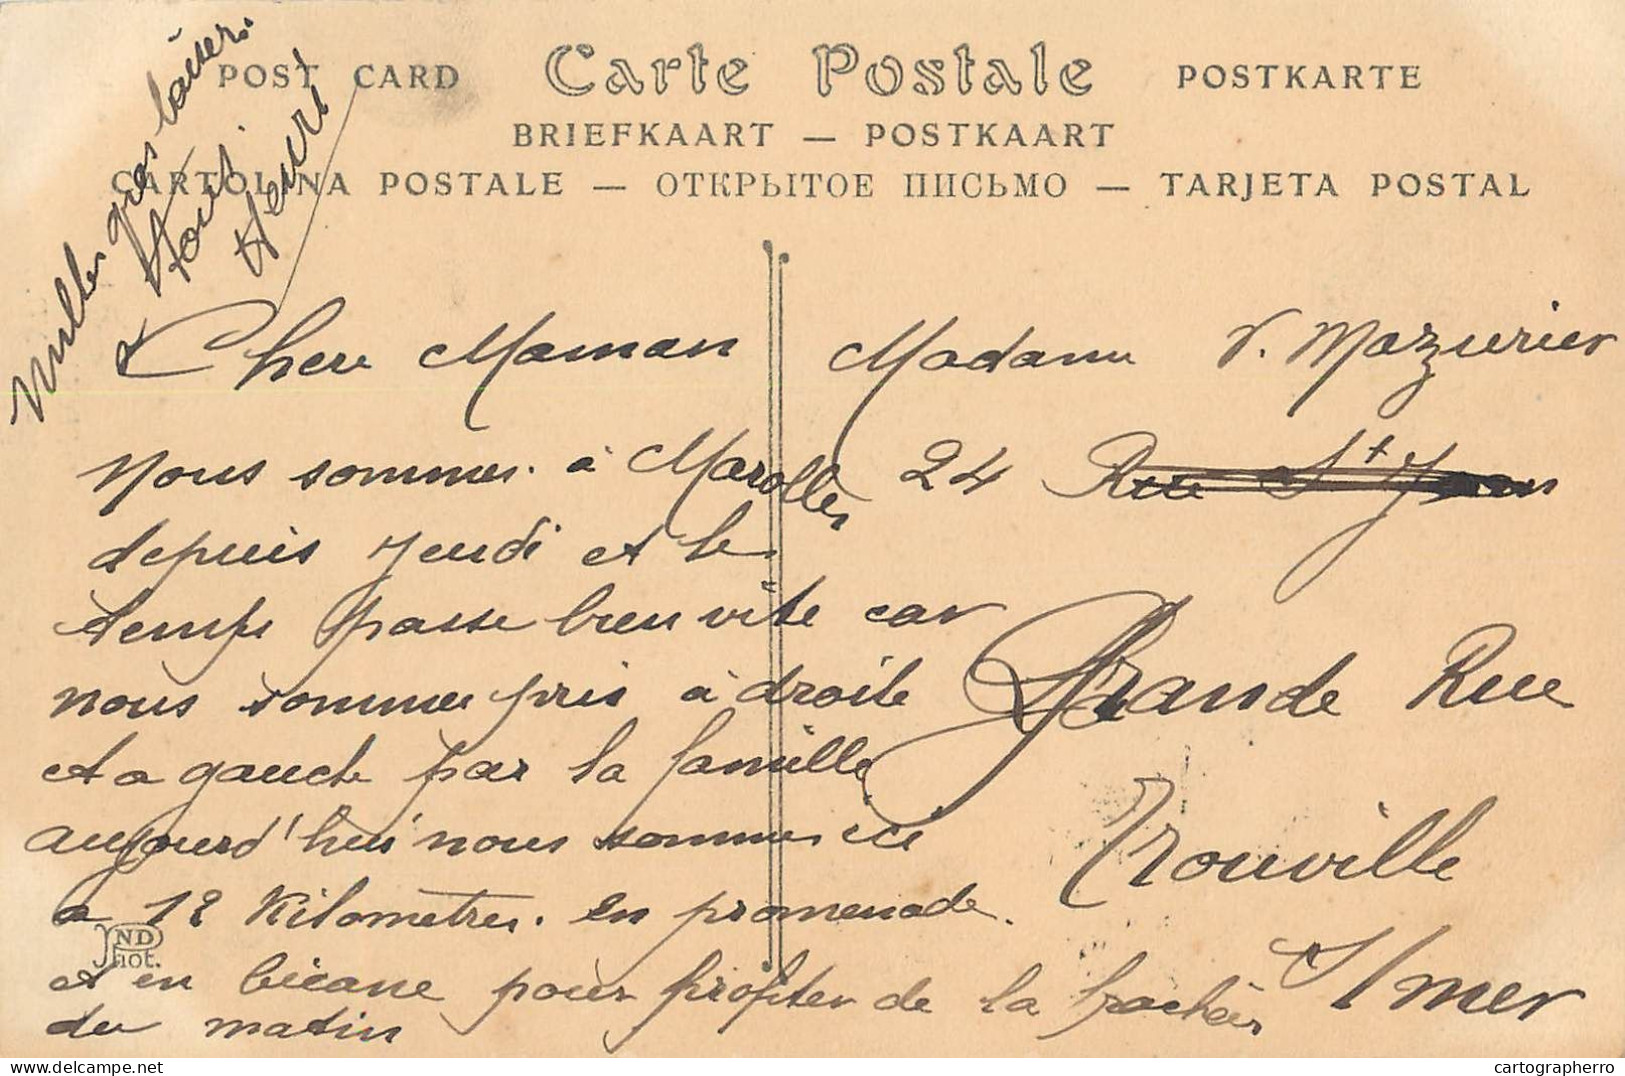 POST CARD Carte Postale POSTKARTE
BRIEFKAART — POSTKAART
CARTOLINA POSTALE — ОТКРЫТОЕ ПИСЬМО — TARJETA POSTAL
Milles gros baisers.
Henri
Chere Maman
nous sommes à Marolles
depuis jeudi et le
temps passe bien vite car
nous sommes pris à droite
et a gauche par la famille
aujourd'hui nous sommes ici
a 12 Kilometres. en promenade.
et en bécane pour profiter de la fraicheur
du matin
Madame V. Mazurier
24 Rue St
Grande Rue
Trouville
S/mer
ND
Phot.
cartographerro